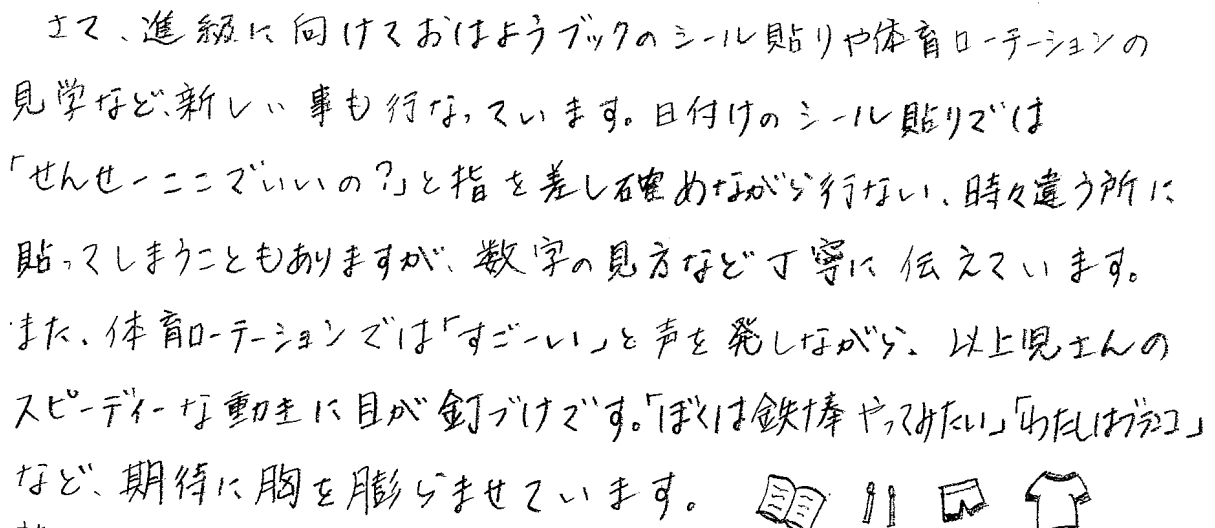 さて、進級に向けておはようブックのシール貼りや体育ローテーションの
見学など、新しい事も行なっています。日付けのシール貼りでは
「せんせーここでいいの?」と指を差し確めながら行ない、時々違う所に
貼ってしまうこともありますが、数字の見方など丁寧に伝えています。
また、体育ローテーションでは「すごーい」と声を発しながら、以上児さんの
スピーディーな動きに目が釘づけです。「ぼくは鉄棒やってみたい」「わたしはブランコ」
など、期待に胸を膨らませています。